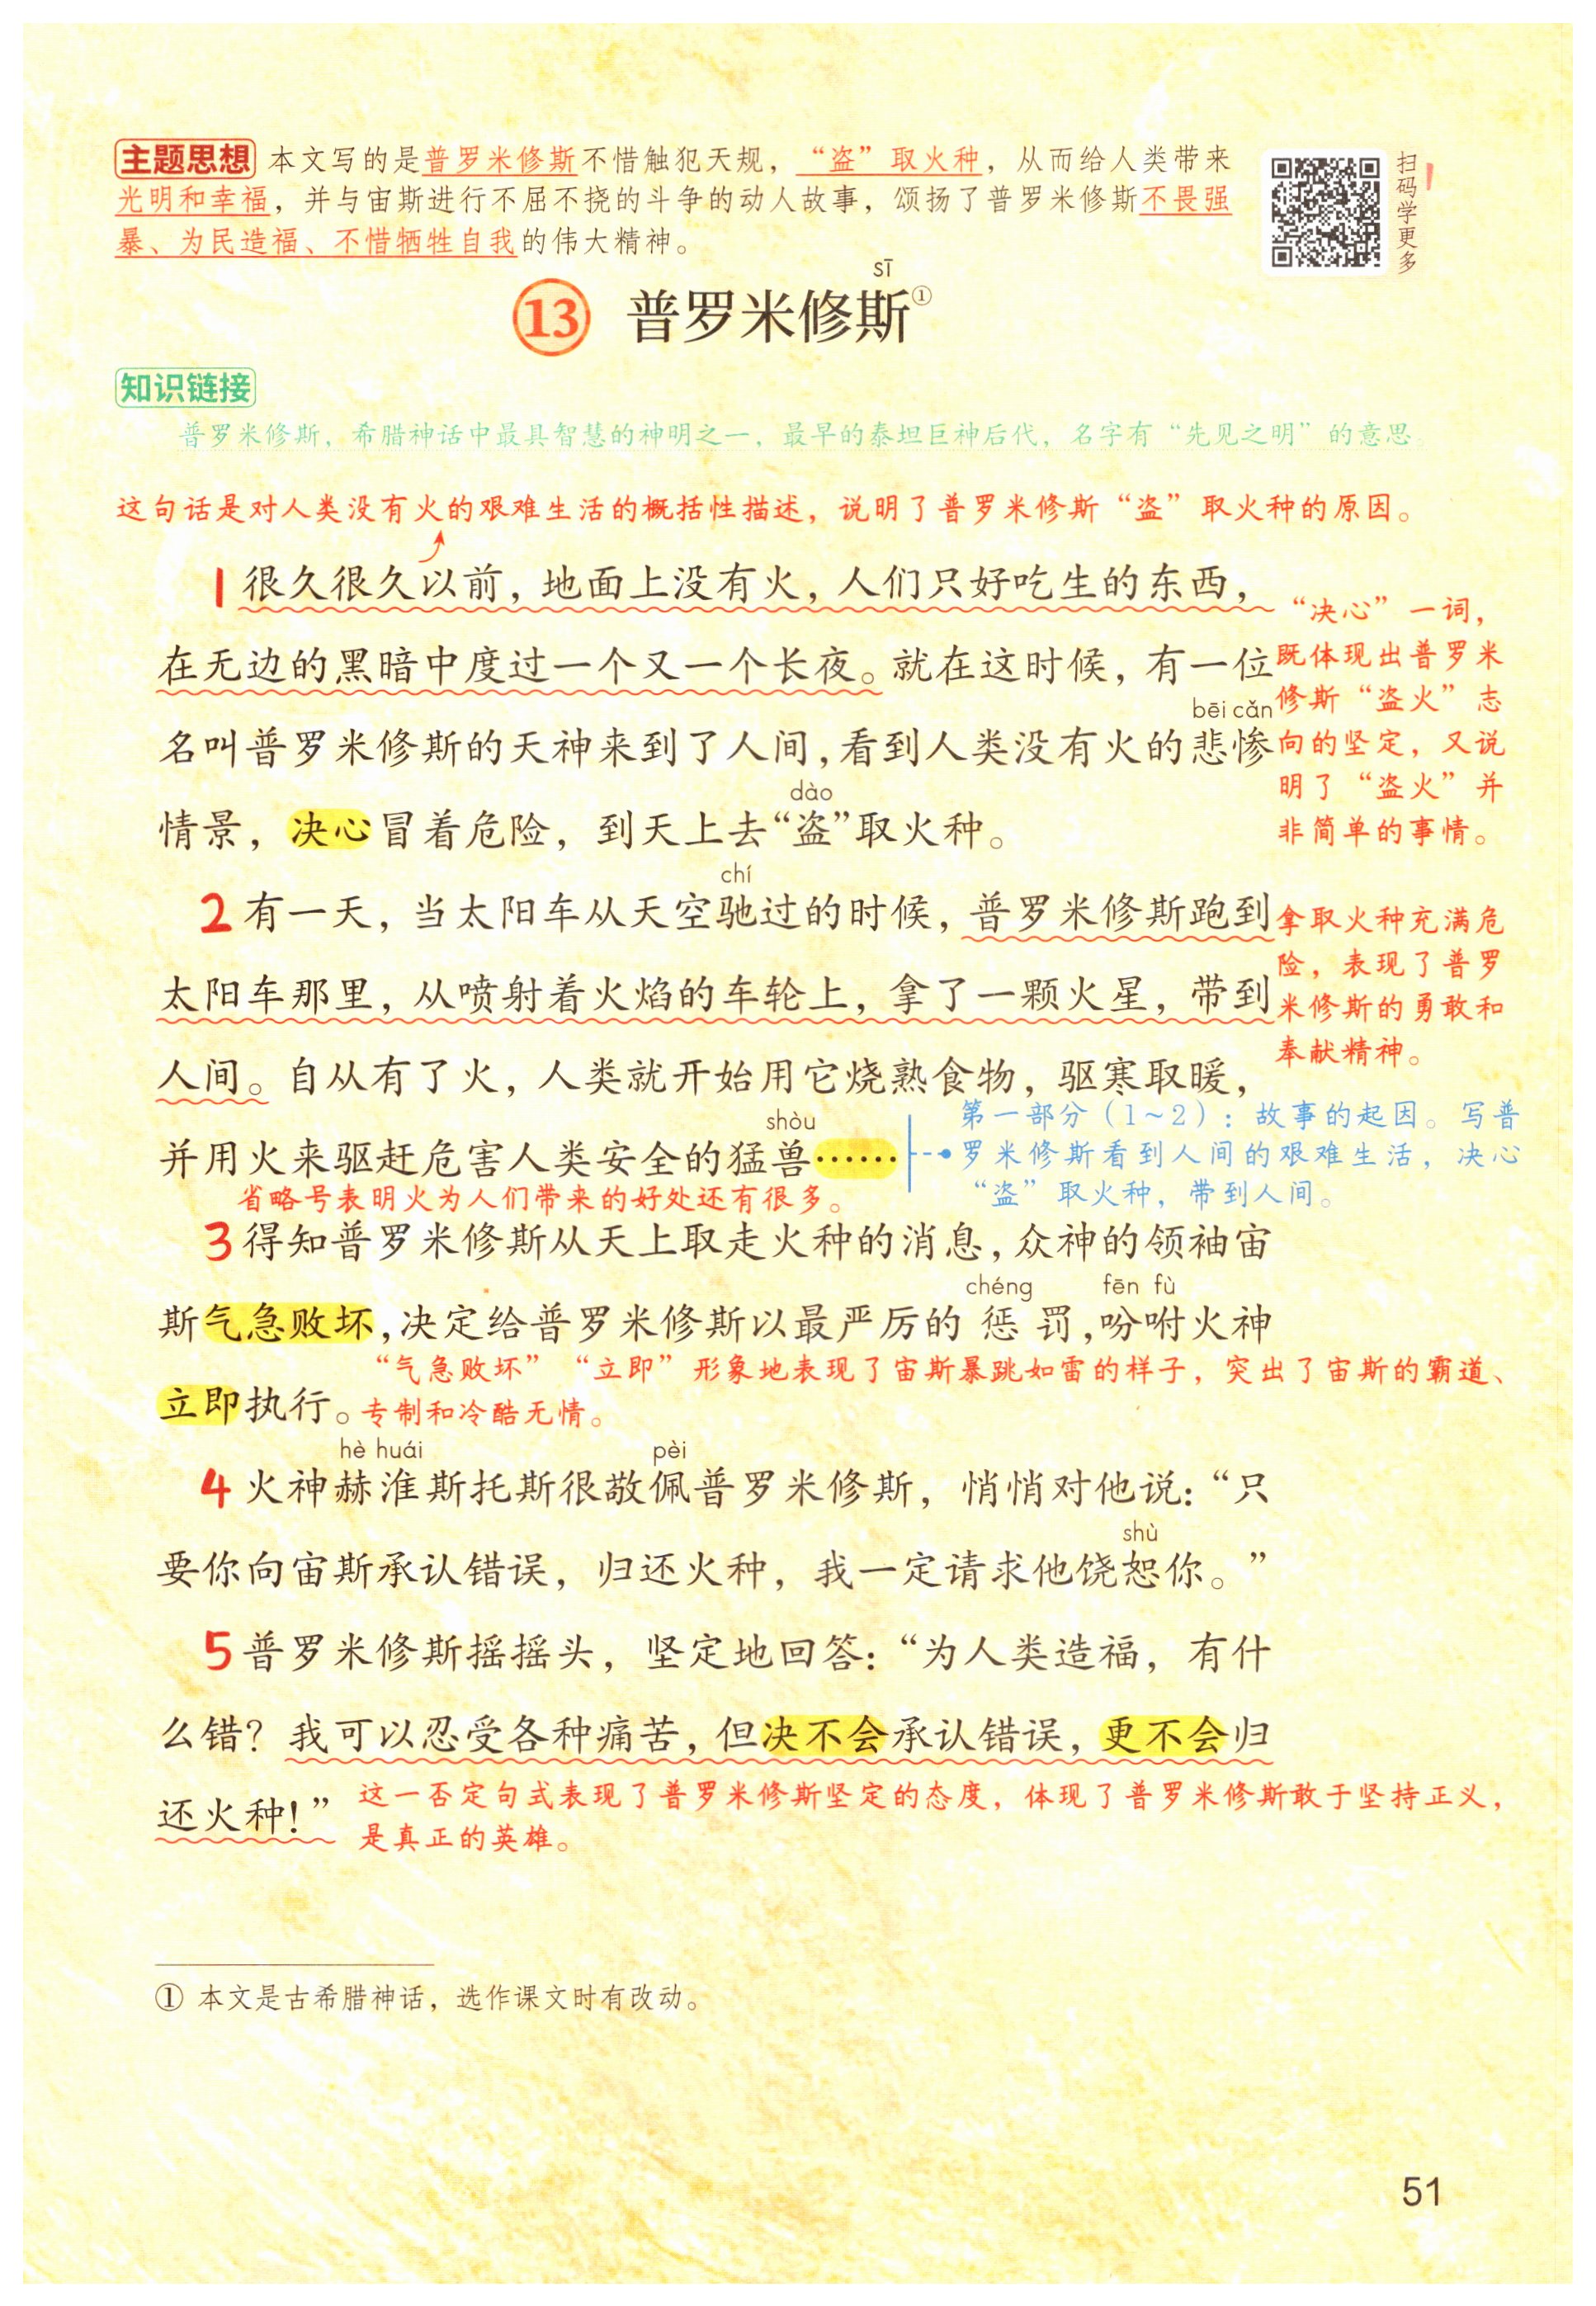 主题思想 本文写的是普罗米修斯不惜触犯天规，“盗”取火种，从而给人类带来
光明和幸福，并与宙斯进行不屈不挠的斗争的动人故事，颂扬了普罗米修斯不畏强
暴、为民造福、不惜牺牲自我的伟大精神。
扫码学更多
sī
13 普罗米修斯①
知识链接
普罗米修斯，希腊神话中最具智慧的神明之一，最早的泰坦巨神后代，名字有“先见之明”的意思。
这句话是对人类没有火的艰难生活的概括性描述，说明了普罗米修斯“盗”取火种的原因。
1 很久很久以前，地面上没有火，人们只好吃生的东西，
在无边的黑暗中度过一个又一个长夜。就在这时候，有一位
bēi cǎn
名叫普罗米修斯的天神来到了人间，看到人类没有火的悲惨
dào
情景，决心冒着危险，到天上去“盗”取火种。
“决心”一词，
既体现出普罗米
修斯“盗火”志
向的坚定，又说
明了“盗火”并
非简单的事情。
chí
2 有一天，当太阳车从天空驰过的时候，普罗米修斯跑到
太阳车那里，从喷射着火焰的车轮上，拿了一颗火星，带到
人间。自从有了火，人类就开始用它烧熟食物，驱寒取暖，
shòu
并用火来驱赶危害人类安全的猛兽……
拿取火种充满危
险，表现了普罗
米修斯的勇敢和
奉献精神。
第一部分（1~2）：故事的起因。写普
罗米修斯看到人间的艰难生活，决心
“盗”取火种，带到人间。
省略号表明火为人们带来的好处还有很多。
3 得知普罗米修斯从天上取走火种的消息，众神的领袖宙
chéng fēn fù
斯气急败坏，决定给普罗米修斯以最严厉的惩罚，吩咐火神
立即执行。
“气急败坏”“立即”形象地表现了宙斯暴跳如雷的样子，突出了宙斯的霸道、
专制和冷酷无情。
hè huái pèi
4 火神赫淮斯托斯很敬佩普罗米修斯，悄悄对他说：“只
shù
要你向宙斯承认错误，归还火种，我一定请求他饶恕你。”
5 普罗米修斯摇摇头，坚定地回答：“为人类造福，有什
么错？我可以忍受各种痛苦，但决不会承认错误，更不会归
还火种！”
这一否定句式表现了普罗米修斯坚定的态度，体现了普罗米修斯敢于坚持正义，
是真正的英雄。
① 本文是古希腊神话，选作课文时有改动。
51